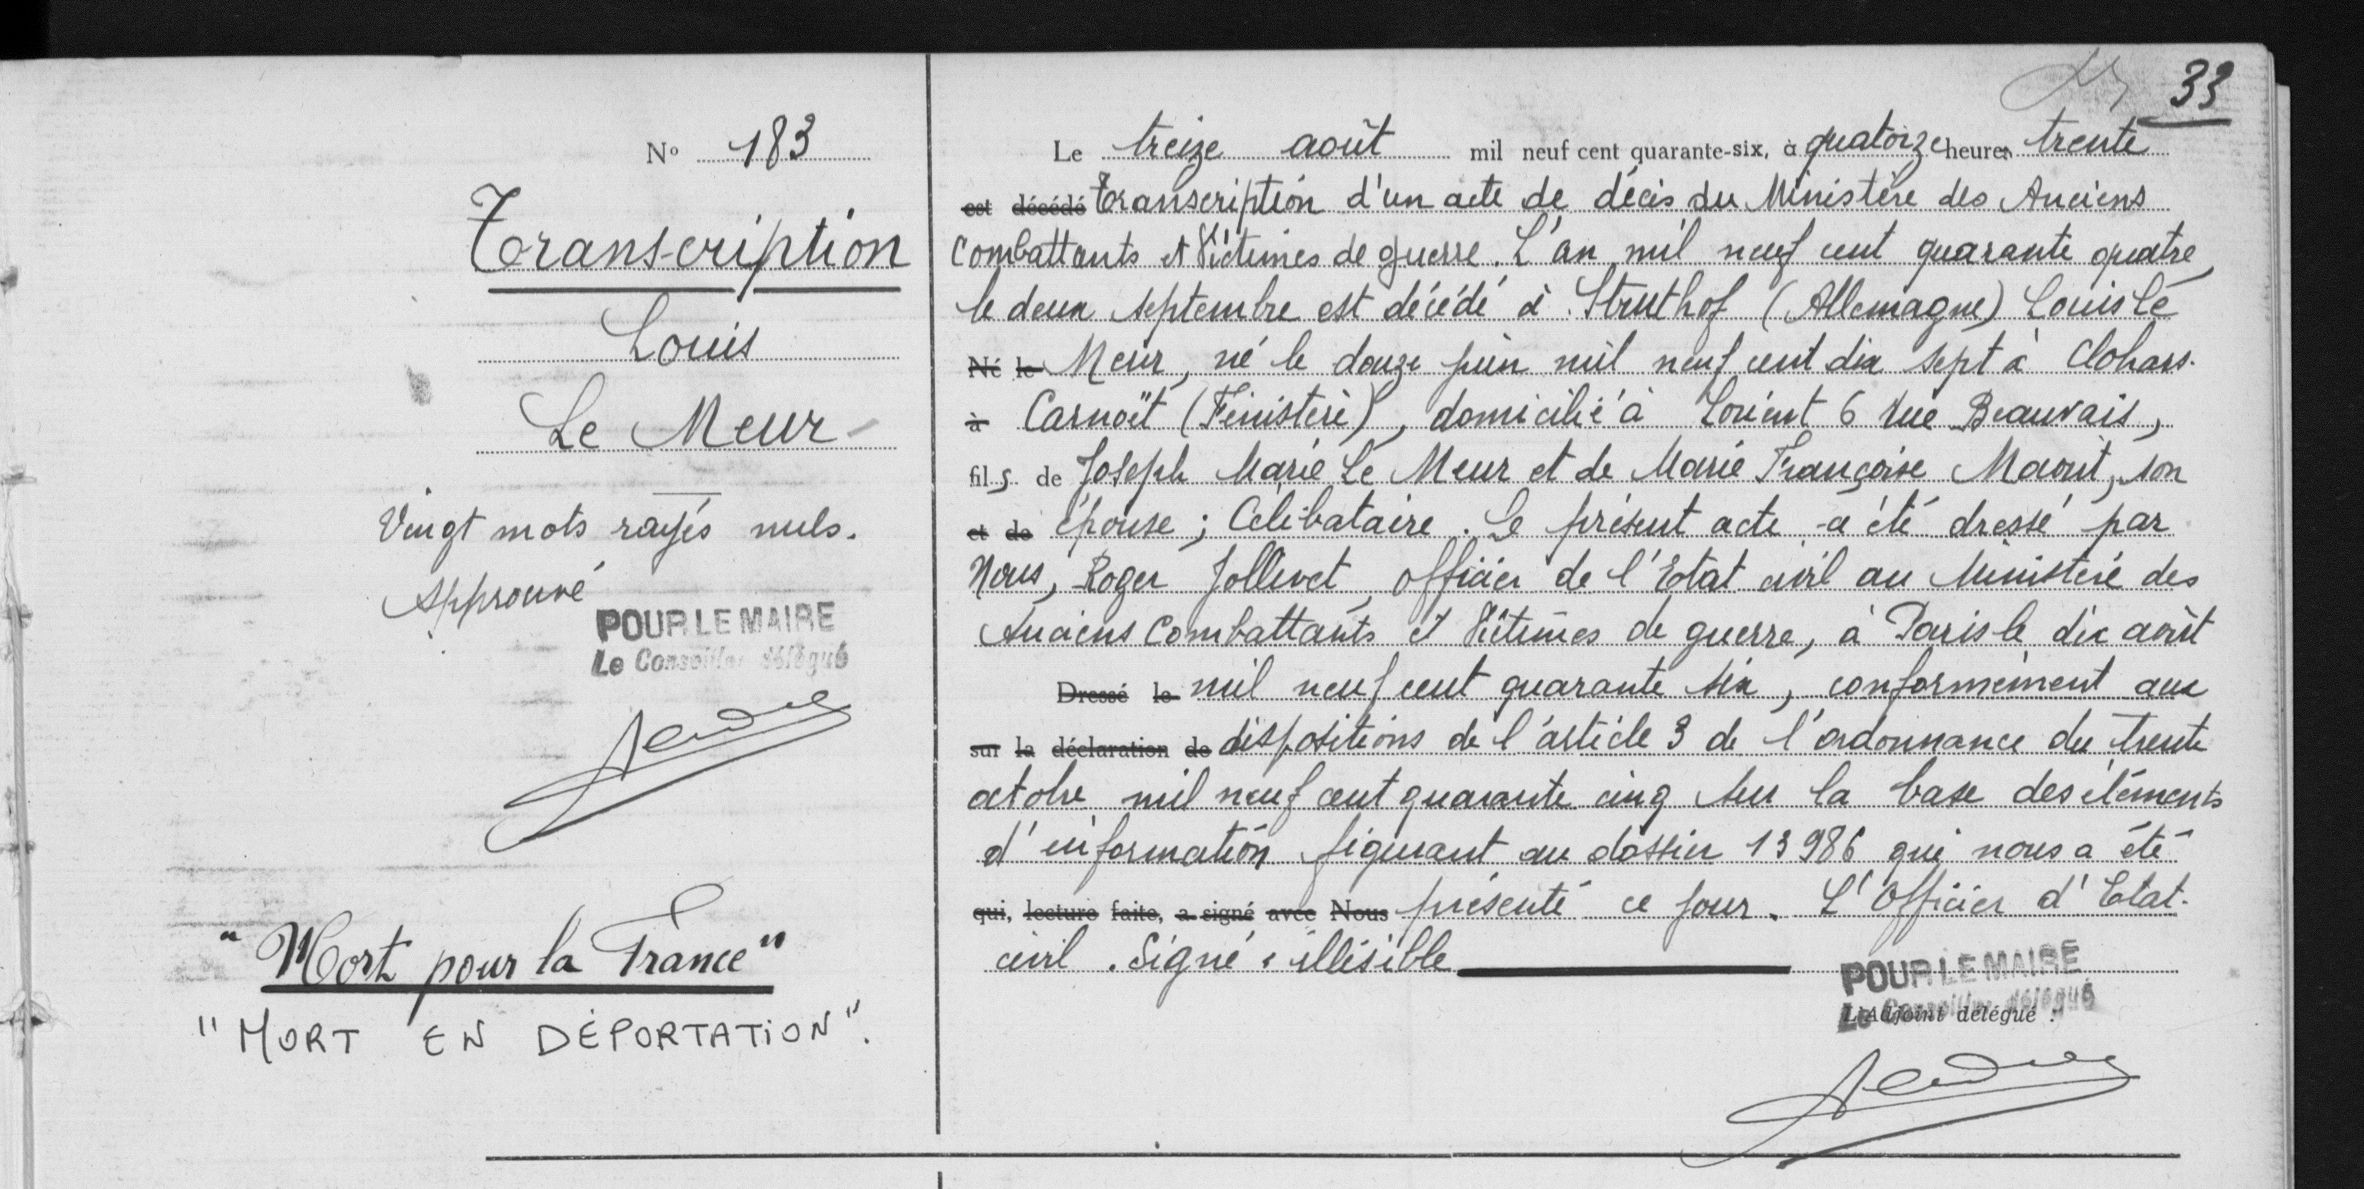 33
N° 183
Transcription
Louis
Le Meur
Vingt mots rayés nuls.
Approuvé
POUR LE MAIRE
Le Conseiller délégué
"Mort pour la France"
"MORT EN DÉPORTATION".
Le treize août mil neuf cent quarante-six, à quatorze heures trente
est décédé Transcription d'un acte de décès du Ministère des Anciens
Combattants et Victimes de guerre. L'an mil neuf cent quarante quatre,
le deux septembre est décédé à Struthof (Allemagne) Louis Le
Né le Meur, né le douze juin mil neuf cent dix sept à Clohars-
à Carnoët (Finistère), domicilié à Lorient 6 rue Beauvais,
fils de Joseph Marie Le Meur et de Marie Françoise Maout, son
et de épouse ; Célibataire. Le présent acte a été dressé par
Nous, Roger Jollivet, officier de l'Etat civil au Ministère des
Anciens Combattants et Victimes de guerre, à Paris le dix août
Dressé le mil neuf cent quarante six, conformément aux
sur la déclaration de dispositions de l'article 3 de l'ordonnance du trente
octobre mil neuf cent quarante cinq sur la base des éléments
d'information figurant au dossier 13986 qui nous a été
qui, lecture faite, a signé avec Nous présenté ce jour. L'Officier d'Etat-
civil. Signé : illisible
POUR LE MAIRE
Le Conseiller délégué
L'Adjoint délégué :